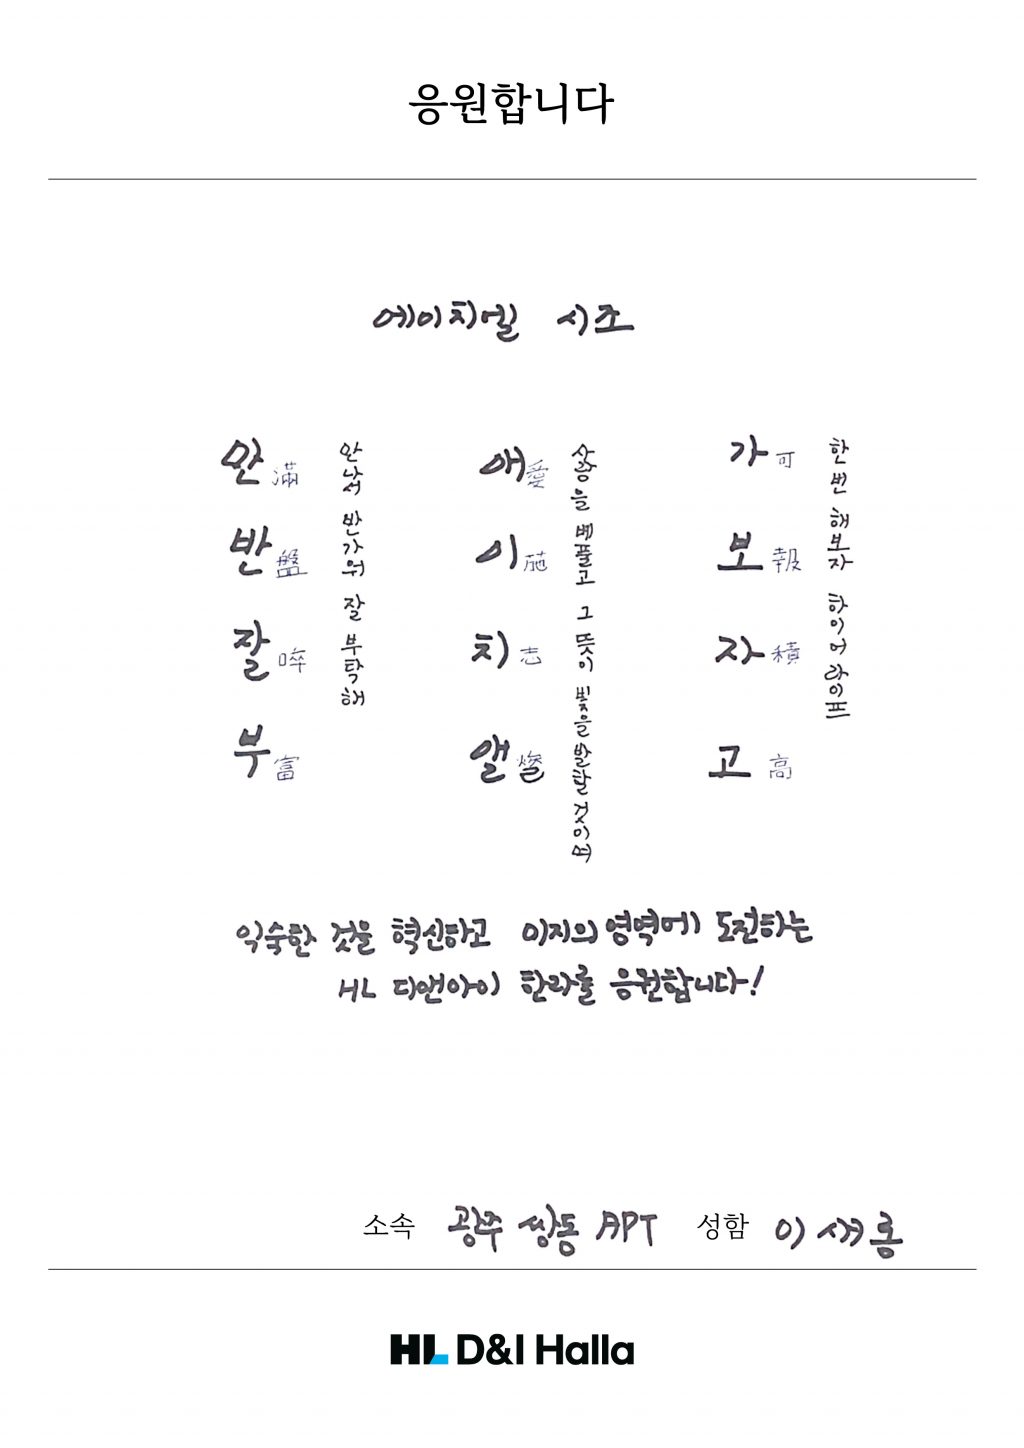 응원합니다
에이치엘 시조
만 滿
반 盤
잘 啐
부 富
만나서 반가워 잘 부탁해
애 愛
이 葹
치 志
앨
사랑을 베풀고 그 뜻이 빛을 발할 것이며
가 可
보 報
자 積
고 高
한번 해보자 하이어 라이프
익숙한 것을 혁신하고 미지의 영역에 도전하는
HL 디앤아이 한라를 응원합니다!
소속 광주 쌍동 APT 성함 이새롱
HL D&I Halla